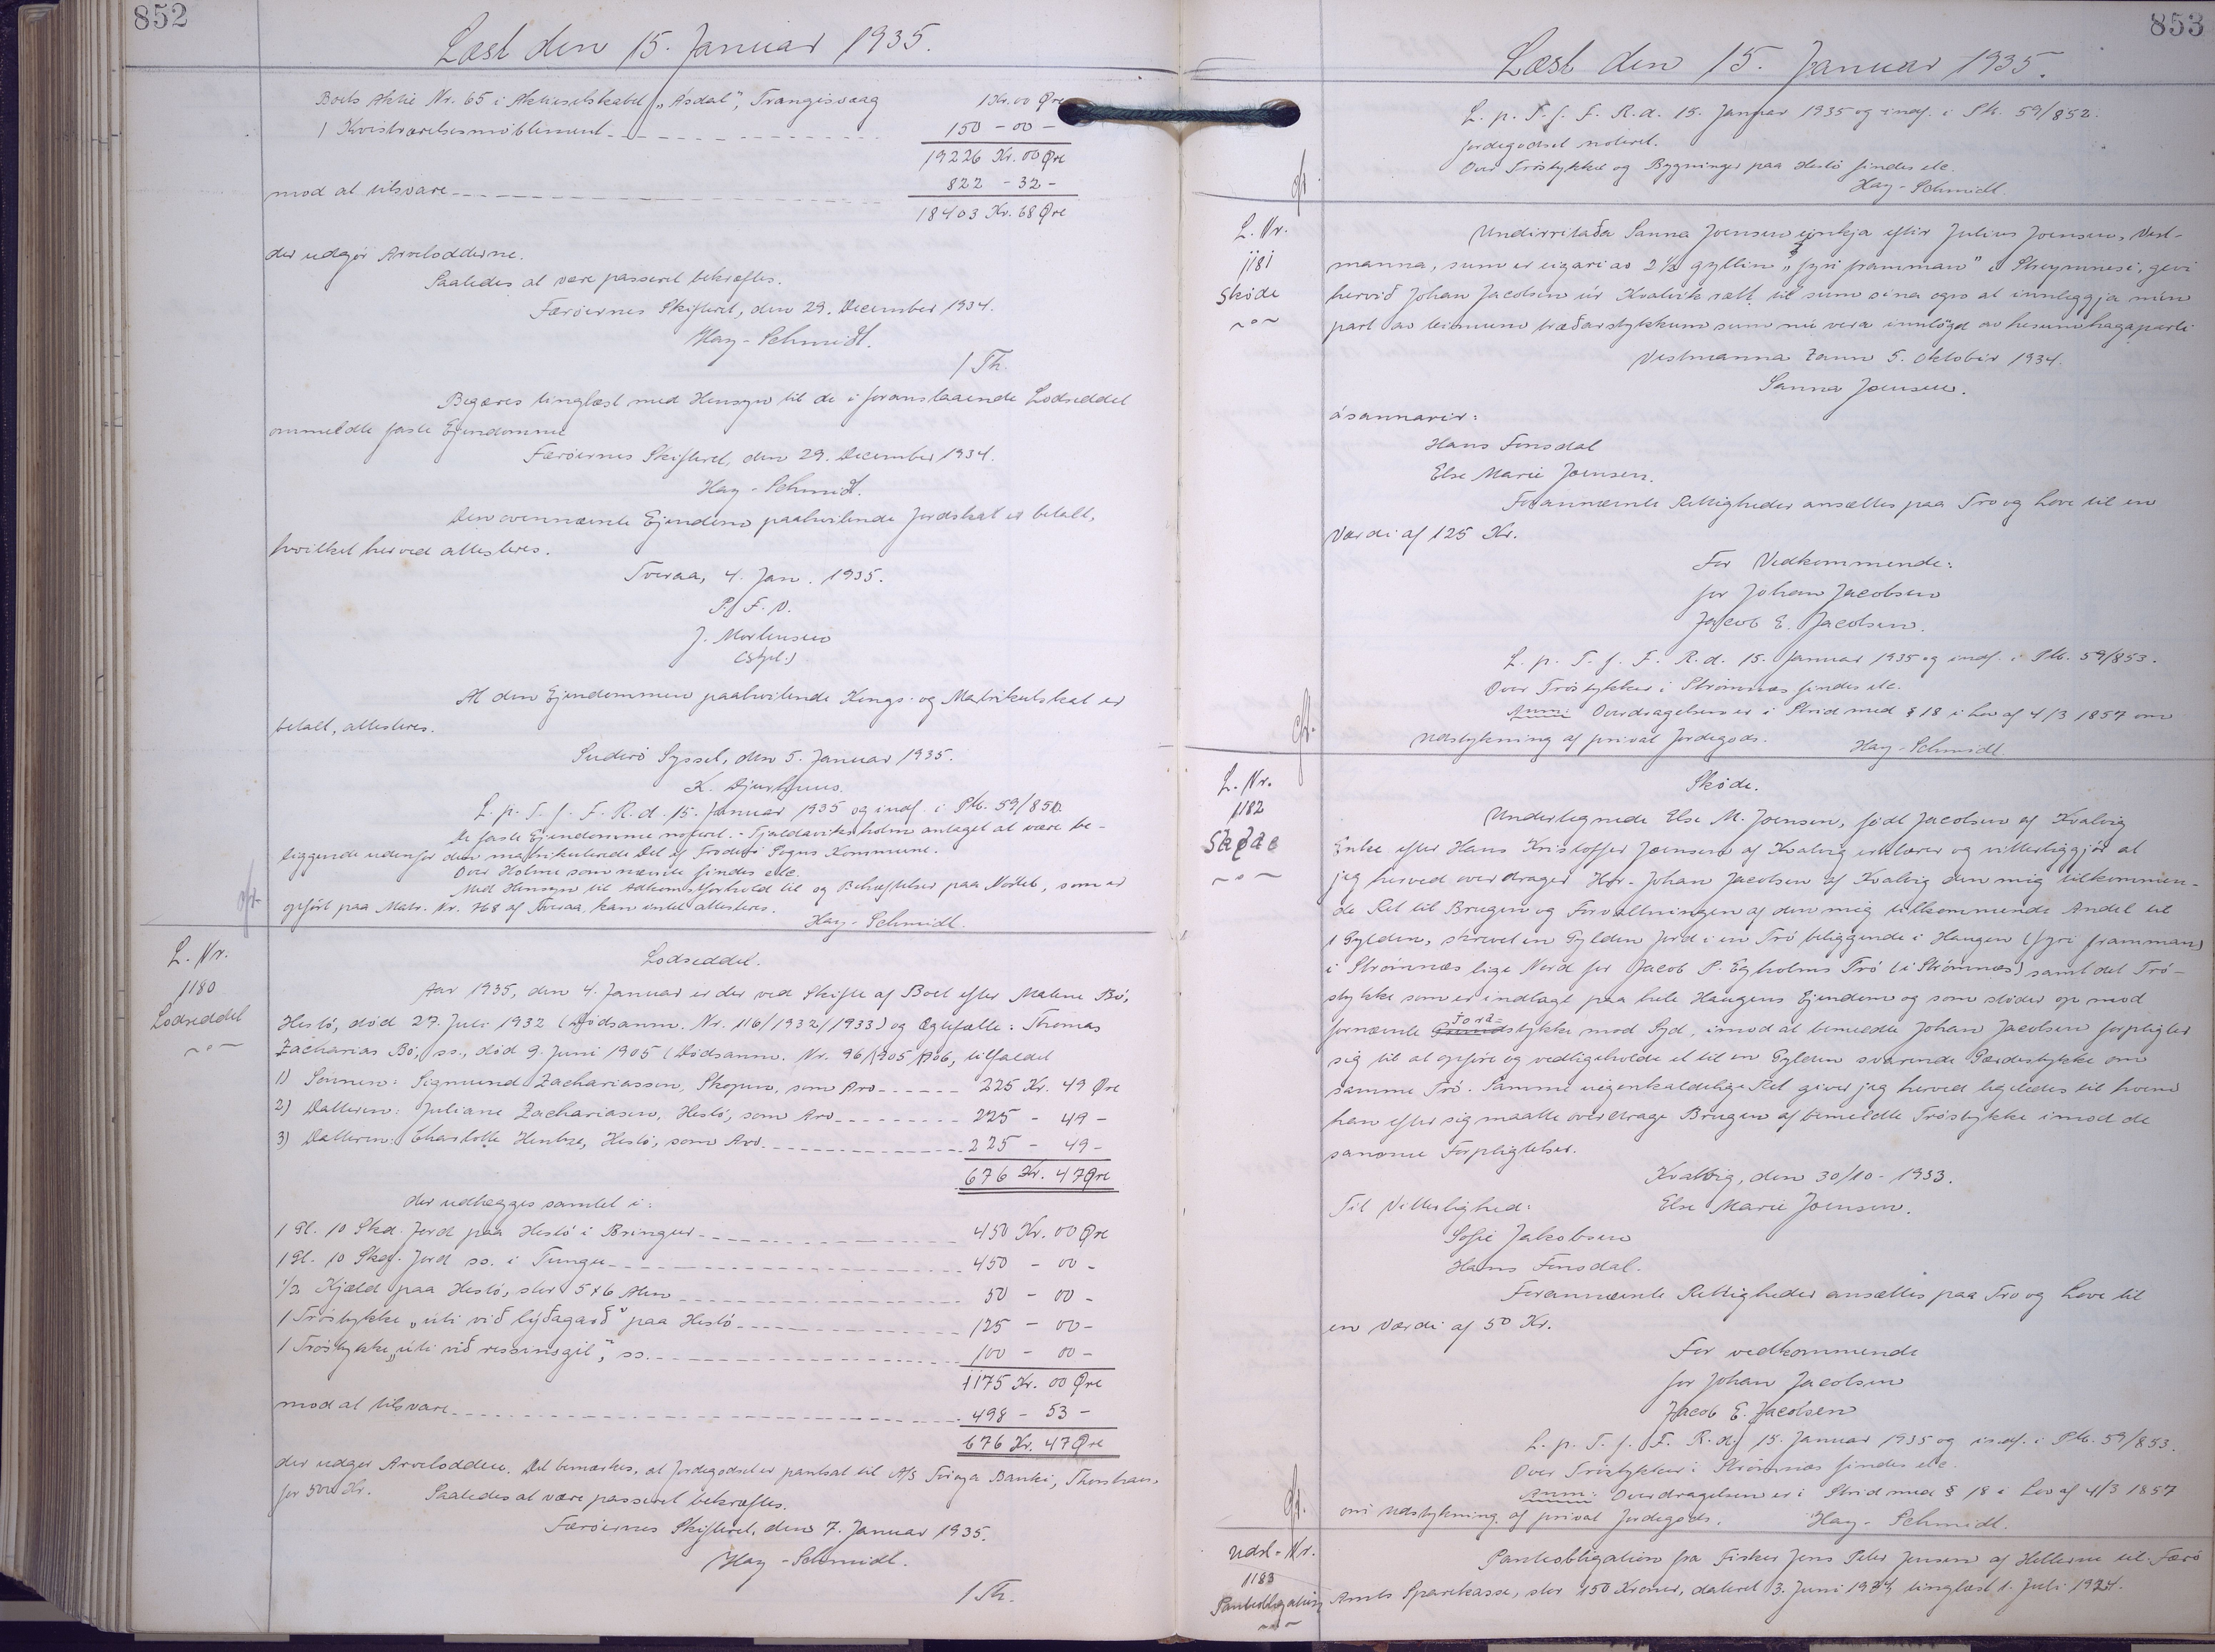 852
Læst den 15. Januar 1935.
Boets Aktie Nr. 65 i Aktieselskabet "Ásdal", Trangisvaag 1 Kr. 00 Øre
1 Kvistværelsesmøblement 150 - 00 -
19226 Kr. 00 Øre
mod at tilsvare 822 - 32 -
18403 Kr. 68 Øre
der udgør Arvelodderne.
Saaledes at være passeret bekræftes.
Færöernes Skifteret, den 29. December 1934.
Hay-Schmidt.
/Th.
Begæres tinglæst med Hensyn til de i foranstaaende Lodseddel
ommeldte faste Ejendomme
Færöernes Skifteret, den 29. December 1934.
Hay-Schmidt.
Den ovennævnte Ejendom paahvilende Jordskat er betalt,
hvilket herved attesteres.
Tveraa, 4. Jan. 1935.
P. F. V.
J. Mortensen
At den Ejendommen paahvilende Kongs- og Matrikulskat er
betalt, attesteres.
Suderö Syssel, den 5. Januar 1935.
K. Djurhuus.
L. p. T. f. F. R. d. 15. Januar 1935 og indf. i Ptb. 59/850.
De faste Ejendomme noteret. - Tjaldaviksholm antaget at være be-
liggende udenfor den matrikulerede Del af Froderö Sogns Kommune.
Over Holme som nævnte findes etc.
Med Hensyn til Adkomstforhold til og Behæftelser paa Nöstet, som er
opfört paa Matr. Nr. 768 af Tveraa, kan intet attesteres.
Hay-Schmidt.
L. Nr.
1180
Lodseddel
Lodseddel.
Aar 1935, den 4. Januar er der ved Skifte af Boet efter Malene Bö,
Hestö, död 27. Juli 1932 (Dødsanm. Nr. 116/1932/1933) og Ægtefælle: Thomas
Zacharias Bö, ss., död 9. Juni 1905 (Dødsanm. Nr. 96/1905/1906, tilfaldet
1) Sønnen: Sigmund Zachariassen, Skopun, som Arv 225 Kr. 49 Øre
2) Datteren: Juliane Zachariasen, Hestö, som Arv 225 - 49 -
3) Datteren: Charlotte Hentze, Hestö, som Arv 225 - 49 -
676 Kr. 47 Øre
der udlægges samlet i:
1 Gl. 10 Skd. Jord paa Hestö i Bringur 450 Kr. 00 Øre
1 Gl. 10 Skd. Jord ss. i Tungu 450 - 00 -
1/2 Kjæld paa Hestö, stor 5x6 Alen 50 - 00 -
1 Tröstykke "úti við lýðagarð" paa Hestö 125 - 00 -
1 Tröstykke "úti við ressinsgil", ss. 100 - 00 -
1175 Kr. 00 Øre
mod at tilsvare 498 - 53 -
676 Kr. 47 Øre
der udgør Arvelodden. Det bemærkes, at Jordegodset er pantsat til A/S Föroya Banki, Thorshavn,
for 500 Kr. Saaledes at være passeret bekræftes.
Færöernes Skifteret, den 7. Januar 1935.
Hay-Schmidt.
/Th.
853
Læst den 15. Januar 1935.
L. p. T. f. F. R. d. 15. Januar 1935 og indf. i Ptb. 59/852.
Jordegodset noteret.
Over Tröstykket og Bygninger paa Hestö findes etc.
Hay-Schmidt.
L. Nr.
1181
Skøde
Undirritaða Sanna Joensen einkja eftir Julius Joensen, Vest-
manna, sum er eigari av 2 1/2 gyllin "fyri framman" i Streymnesi, gevi
hervið Johan Jacobsen úr Kvalvík rætt til sum sína ogn at innleggja mín
part av teimum træðarstykkum sum nú vera innlögd av hesum hagaparti
Vestmanna tann 5. Oktober 1934.
Sanna Joensen.
ásannarir:
Hans Finsdal
Else Marie Joensen.
Forannævnte Rettigheder ansættes paa Tro og Love til en
Værdi af 125 Kr.
For Vedkommende:
for Johan Jacobsen
Jacob E. Jacobsen.
L. p. T. f. F. R. d. 15. Januar 1935 og indf. i Ptb. 59/853.
Over Tröstykker i Strömnæs findes etc.
Anm: Overdragelsen er i Strid med § 18 i Lov af 4/3 1857 om
Udstykning af privat Jordegods. Hay-Schmidt.
L. Nr.
1182
Skøde
Skøde.
Undertegnede Else M. Joensen, född Jacobsen af Kvalvig
Enke efter Hans Kristoffer Joensen af Kvalvig erklærer og vitterliggjör at
jeg herved overdrager Hr. Johan Jacobsen af Kvalvig den mig tilkommen-
de Ret til Brugen og Forvaltningen af den mig tilkommende Andel til
1 Gylden, skrevet en Gylden Jord i en Trö beliggende i Haugen (fyri framman)
i Strömnæs lige Nord for Jacob P. Egholms Trö (i Strömnæs) samt det Trö-
stykke som er indlagt paa hele Haugens Ejendom og som støder op mod
fornævnte Jord-stykke mod Syd, imod at bemeldte Johan Jacobsen forpligter
sig til at opføre og vedligeholde et til en Gylden svarende Gærdestykke om
samme Trö. Samme uigenkaldelige Ret giver jeg herved ligeledes til hvem
han efter sig maatte overdrage Brugen af bemeldte Tröstykke imod de
samme Forpligtelser.
Kvalvig, den 30/10-1933.
Til Vitterlighed: Else Marie Joensen.
Sofie Jakobsen
Hans Finsdal.
Forannævnte Rettigheder ansættes paa Tro og Love til
en Værdi af 50 Kr.
For vedkommende
for Johan Jacobsen
Jacob E. Jacobsen
L. p. T. f. F. R. d. 15. Januar 1935 og indf. i Ptb. 59/853.
Over Tröstykker i Strömnæs findes etc.
Anm: Overdragelsen er i Strid med § 18 i Lov af 4/3 1857
om Udstykning af privat Jordegods. Hay-Schmidt.
Udsl.-Nr.
1183
Panteobligation
Panteobligation fra Fisker Jens Peter Jensen af Hellerne til Færö
Amts Sparekasse, stor 150 Kroner, dateret 3. Juni 1924, tinglæst 1. Juli 1924.